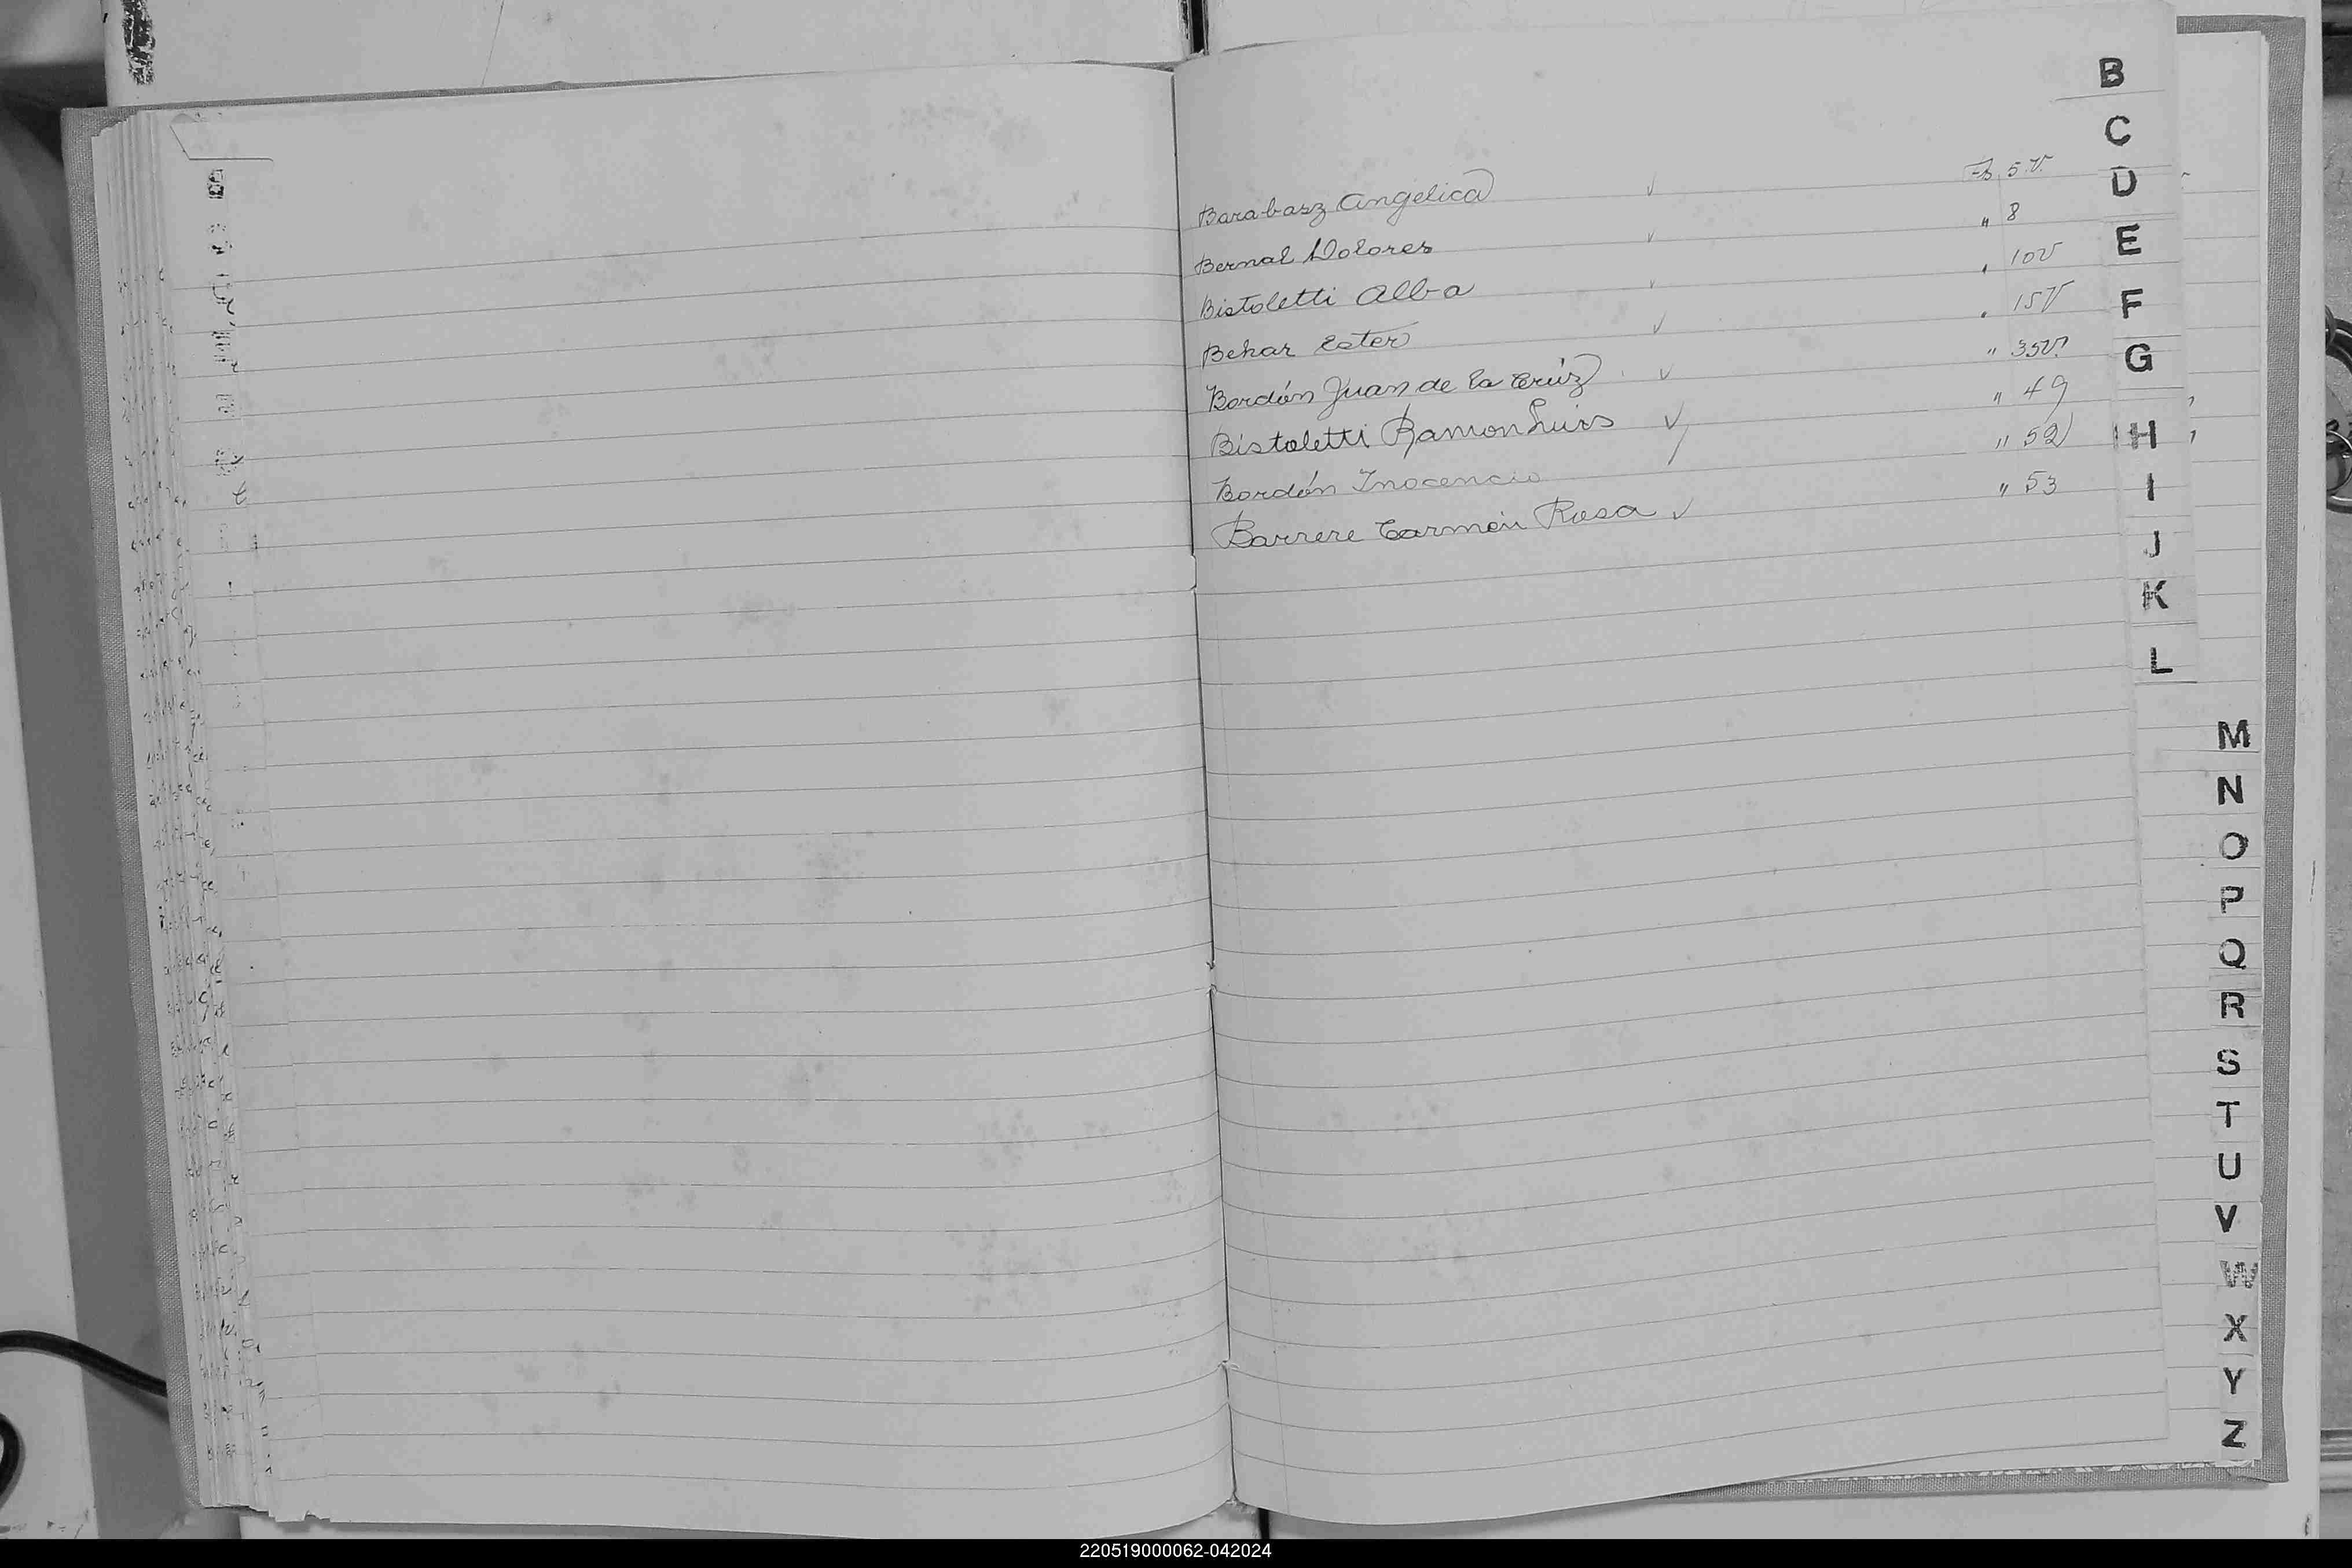 B
C
D
E
F
G
H
I
J
K
L
M
N
O
P
Q
R
S
T
U
V
W
X
Y
Z
Barabasz Angelica ✓ Fs 5 V.
Bernal Dolores ✓ " 8
Bistoletti Alba ✓ " 10V
Behar Ester ✓ " 15V
Bordón Juan de la Crúz ✓ " 35V
Bistoletti Ramon Luis ✓ " 49
Bordón Inocencio " 52
Barrere Carmen Rosa ✓ " 53
220519000062-042024